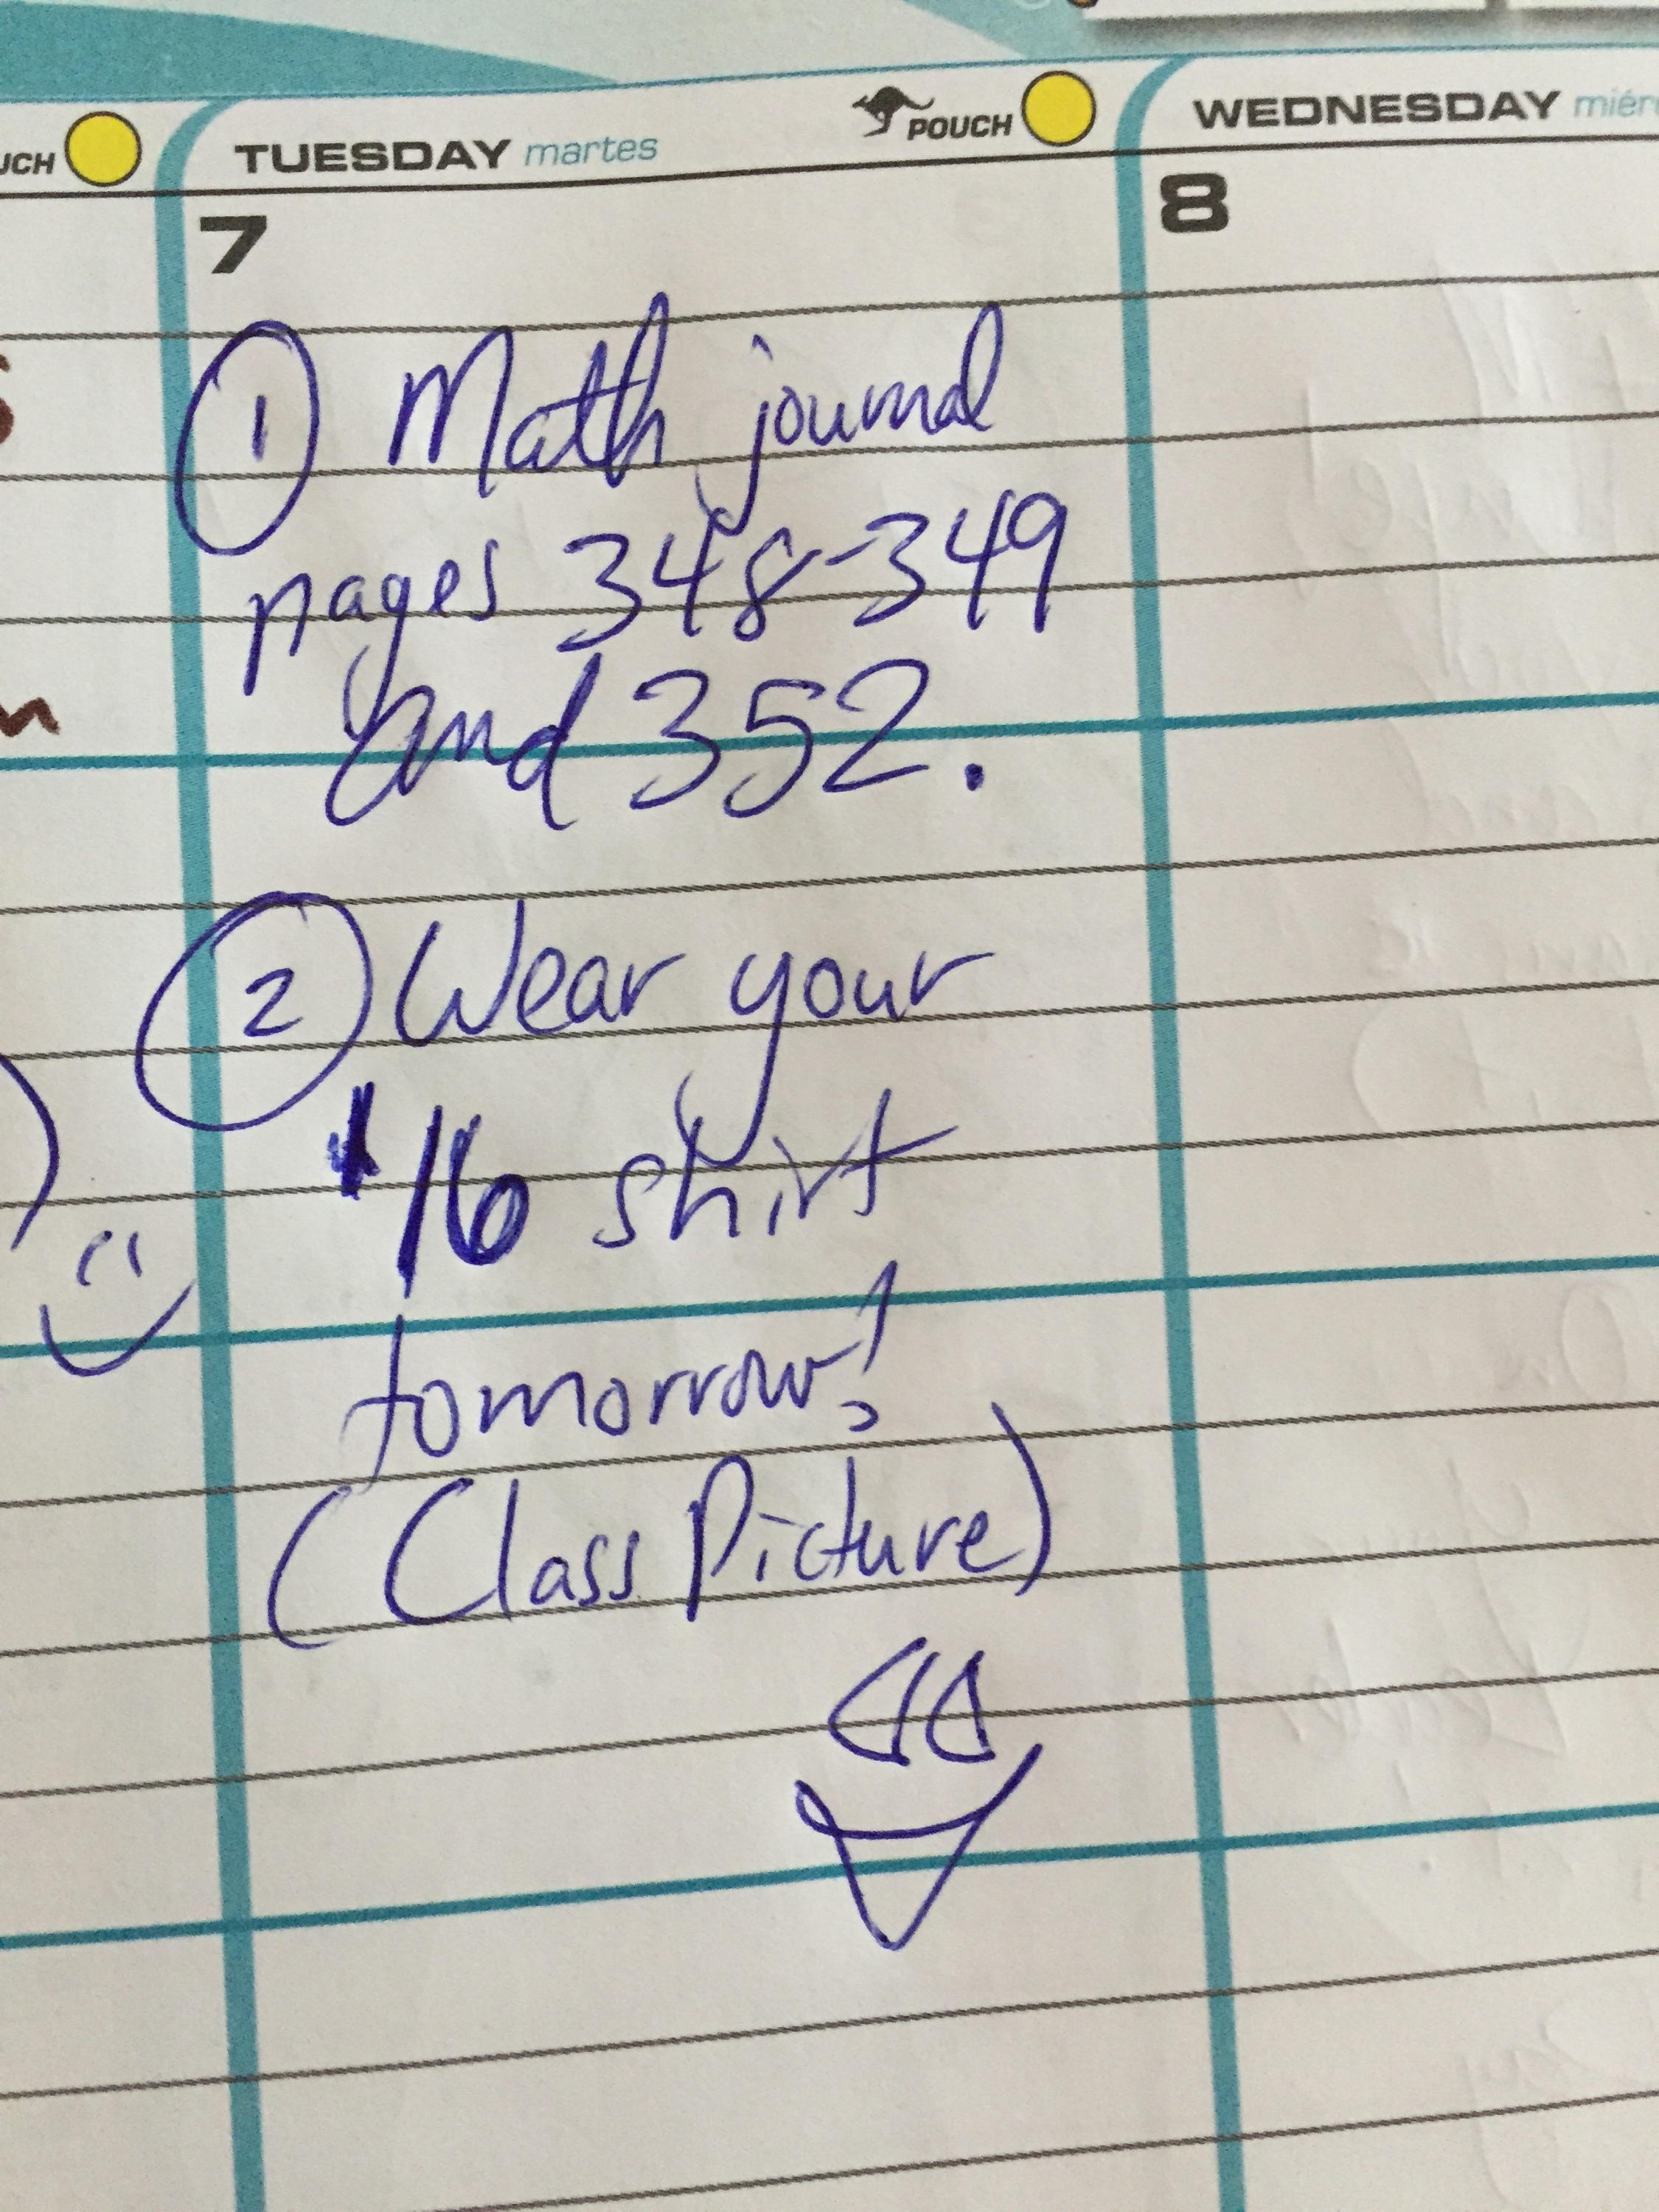 UCH
TUESDAY martes
POUCH
WEDNESDAY miér
7
8
① Math journal
pages 348-349
and 352.
② Wear your
'16 shirt
tomorrow!
(Class Picture)